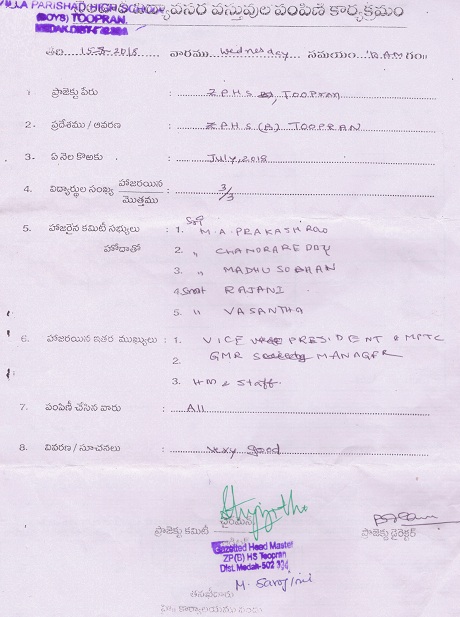 PARISHAD HIGH SCHOOL
(BOYS) TOOPRAN
వస్తువుల పంపిణీ కార్యక్రమం
వారము Wednesday సమయం
1 ప్రాజెక్టు పేరు : ZPHS TOOPRAN
2- ప్రదేశము / ఆవరణ : ZPHS (B) TOOPRAN
3- ఏ నెల కొఱకు : July, 2018
4. విద్యార్థుల సంఖ్య హాజరయిన / మొత్తము : 3/3
5. హాజరైన కమిటీ సభ్యులు : 1. M.A. PRAKASH RAO
హోదాతో 2. " CHANDRA REDDY
3. " MADHUSODHAN
4. Smt RAJANI
5. " VASANTHA
6. హాజరయిన ఇతర ముఖ్యులు : 1. VICE PRESIDENT & MPTC
2. GMR MANAGER
3. HM & Staff.
7. పంపిణీ చేసిన వారు : All
8. వివరణ / సూచనలు : very good
ప్రాజెక్టు కమిటీ ప్రాజెక్టు డైరెక్టర్
Gazetted Head Master
ZP(B) HS Toopran
Dist. Medak-502
M. Sarojini